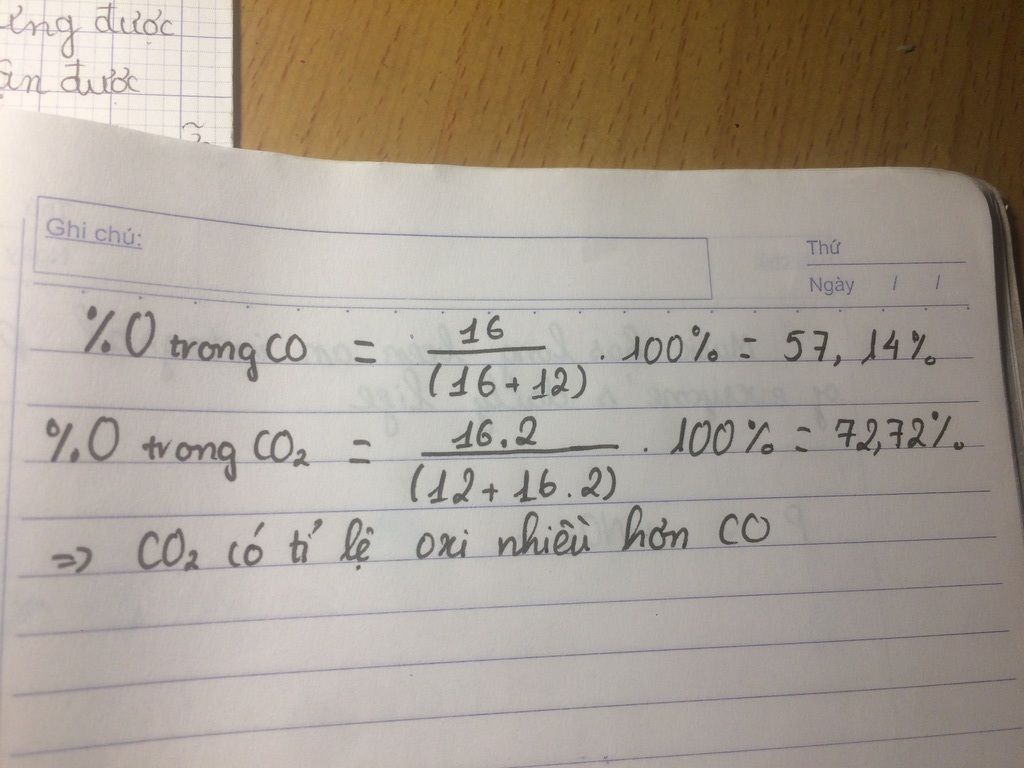 ứng được
ận được
Ghi chú:
Thứ
Ngày / /
%O trong CO = 16/(16+12) . 100% = 57,14%
%O trong CO₂ = 16.2/(12+16.2) . 100% = 72,72%
=> CO₂ có tỉ lệ oxi nhiều hơn CO